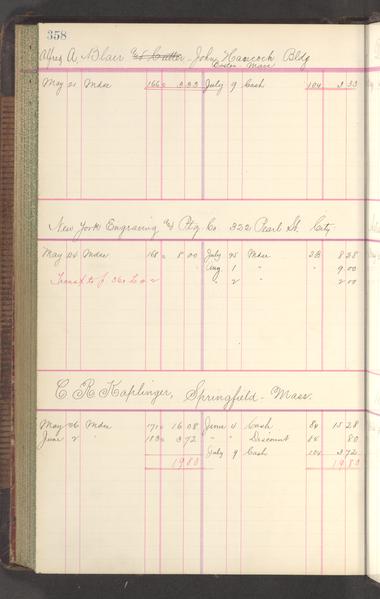 358
Alfred A. Blair John Hancock Bldg
Boston Mass
May 21 Mdse 166 3.33 July 9 Cash 104 3 33
New York Engraving & Ptg Co. 322 Pearl St. City
May 24 Mdse 168 8 00 July 25 Mdse 28 8 28
Aug 1 " " 9.00
Transf to f. 360 " 2 " 2 00
C. R. Kaplinger, Springfield - Mass.
May 26 Mdse 171 16 08 June 4 Cash 84 15 28
June 2 " 183 3 72 " " Discount 15 80
July 9 Cash 104 3 72
19 80 19 80